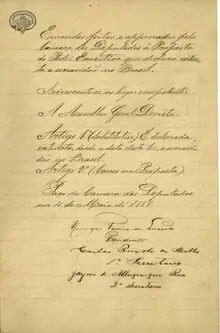 Emendas feitas e approvadas pela
Camara dos Deputados á Proposta
do Poder Executivo que declara extin-
ta a escravidão no Brasil.
Accrescente-se no lugar competente:
A Assembléa Geral Decreta:
Artigo 1º (Substitutivo) É declarada
extincta, desde a data desta lei, a escravi-
dão no Brasil.
Artigo 2º (Como na Proposta)
Paço da Camara dos Deputados
em 10 de Maio de 1888.
de Lucena
Presidente
Carlos Peixoto de Mello
1º Secretario
Jayme de Albuquerque Rosa
2º Secretario